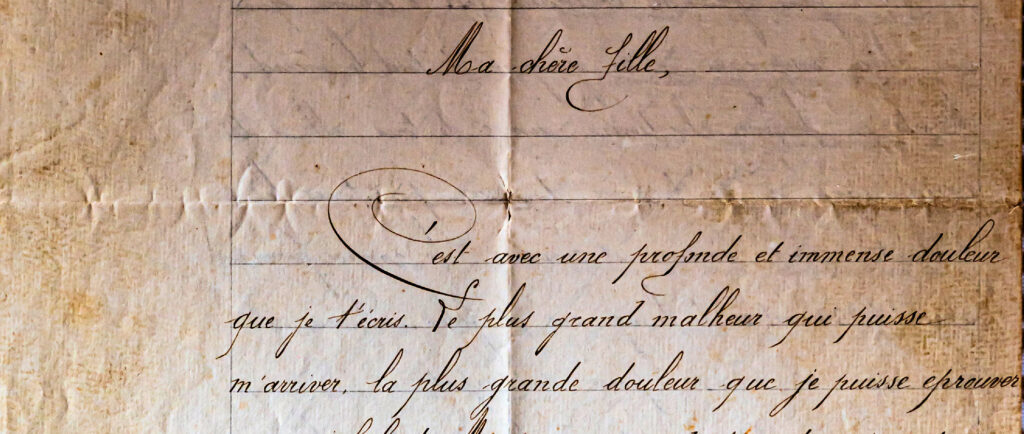 Ma chère fille,
C'est avec une profonde et immense douleur
que je t'écris. Le plus grand malheur qui puisse
m'arriver, la plus grande douleur que je puisse eprouver